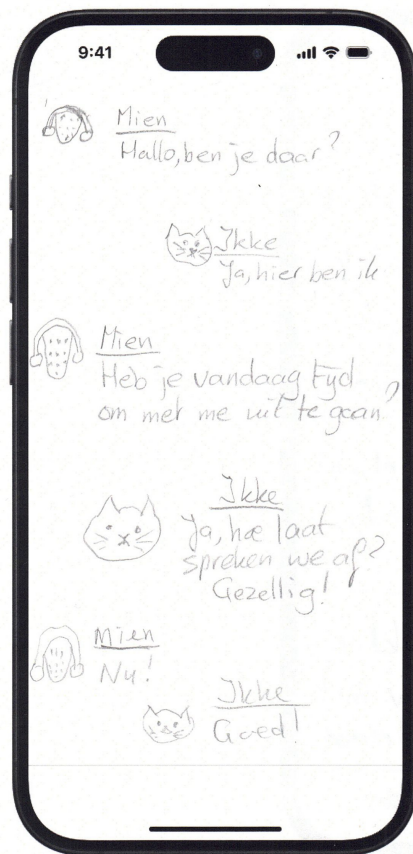 9:41
Mien
Hallo, ben je daar?
Ikke
Ja, hier ben ik
Mien
Heb je vandaag tijd
om met me uit te gaan?
Ikke
Ja, hoe laat
spreken we af?
Gezellig!
Mien
Nu!
Ikke
Goed!